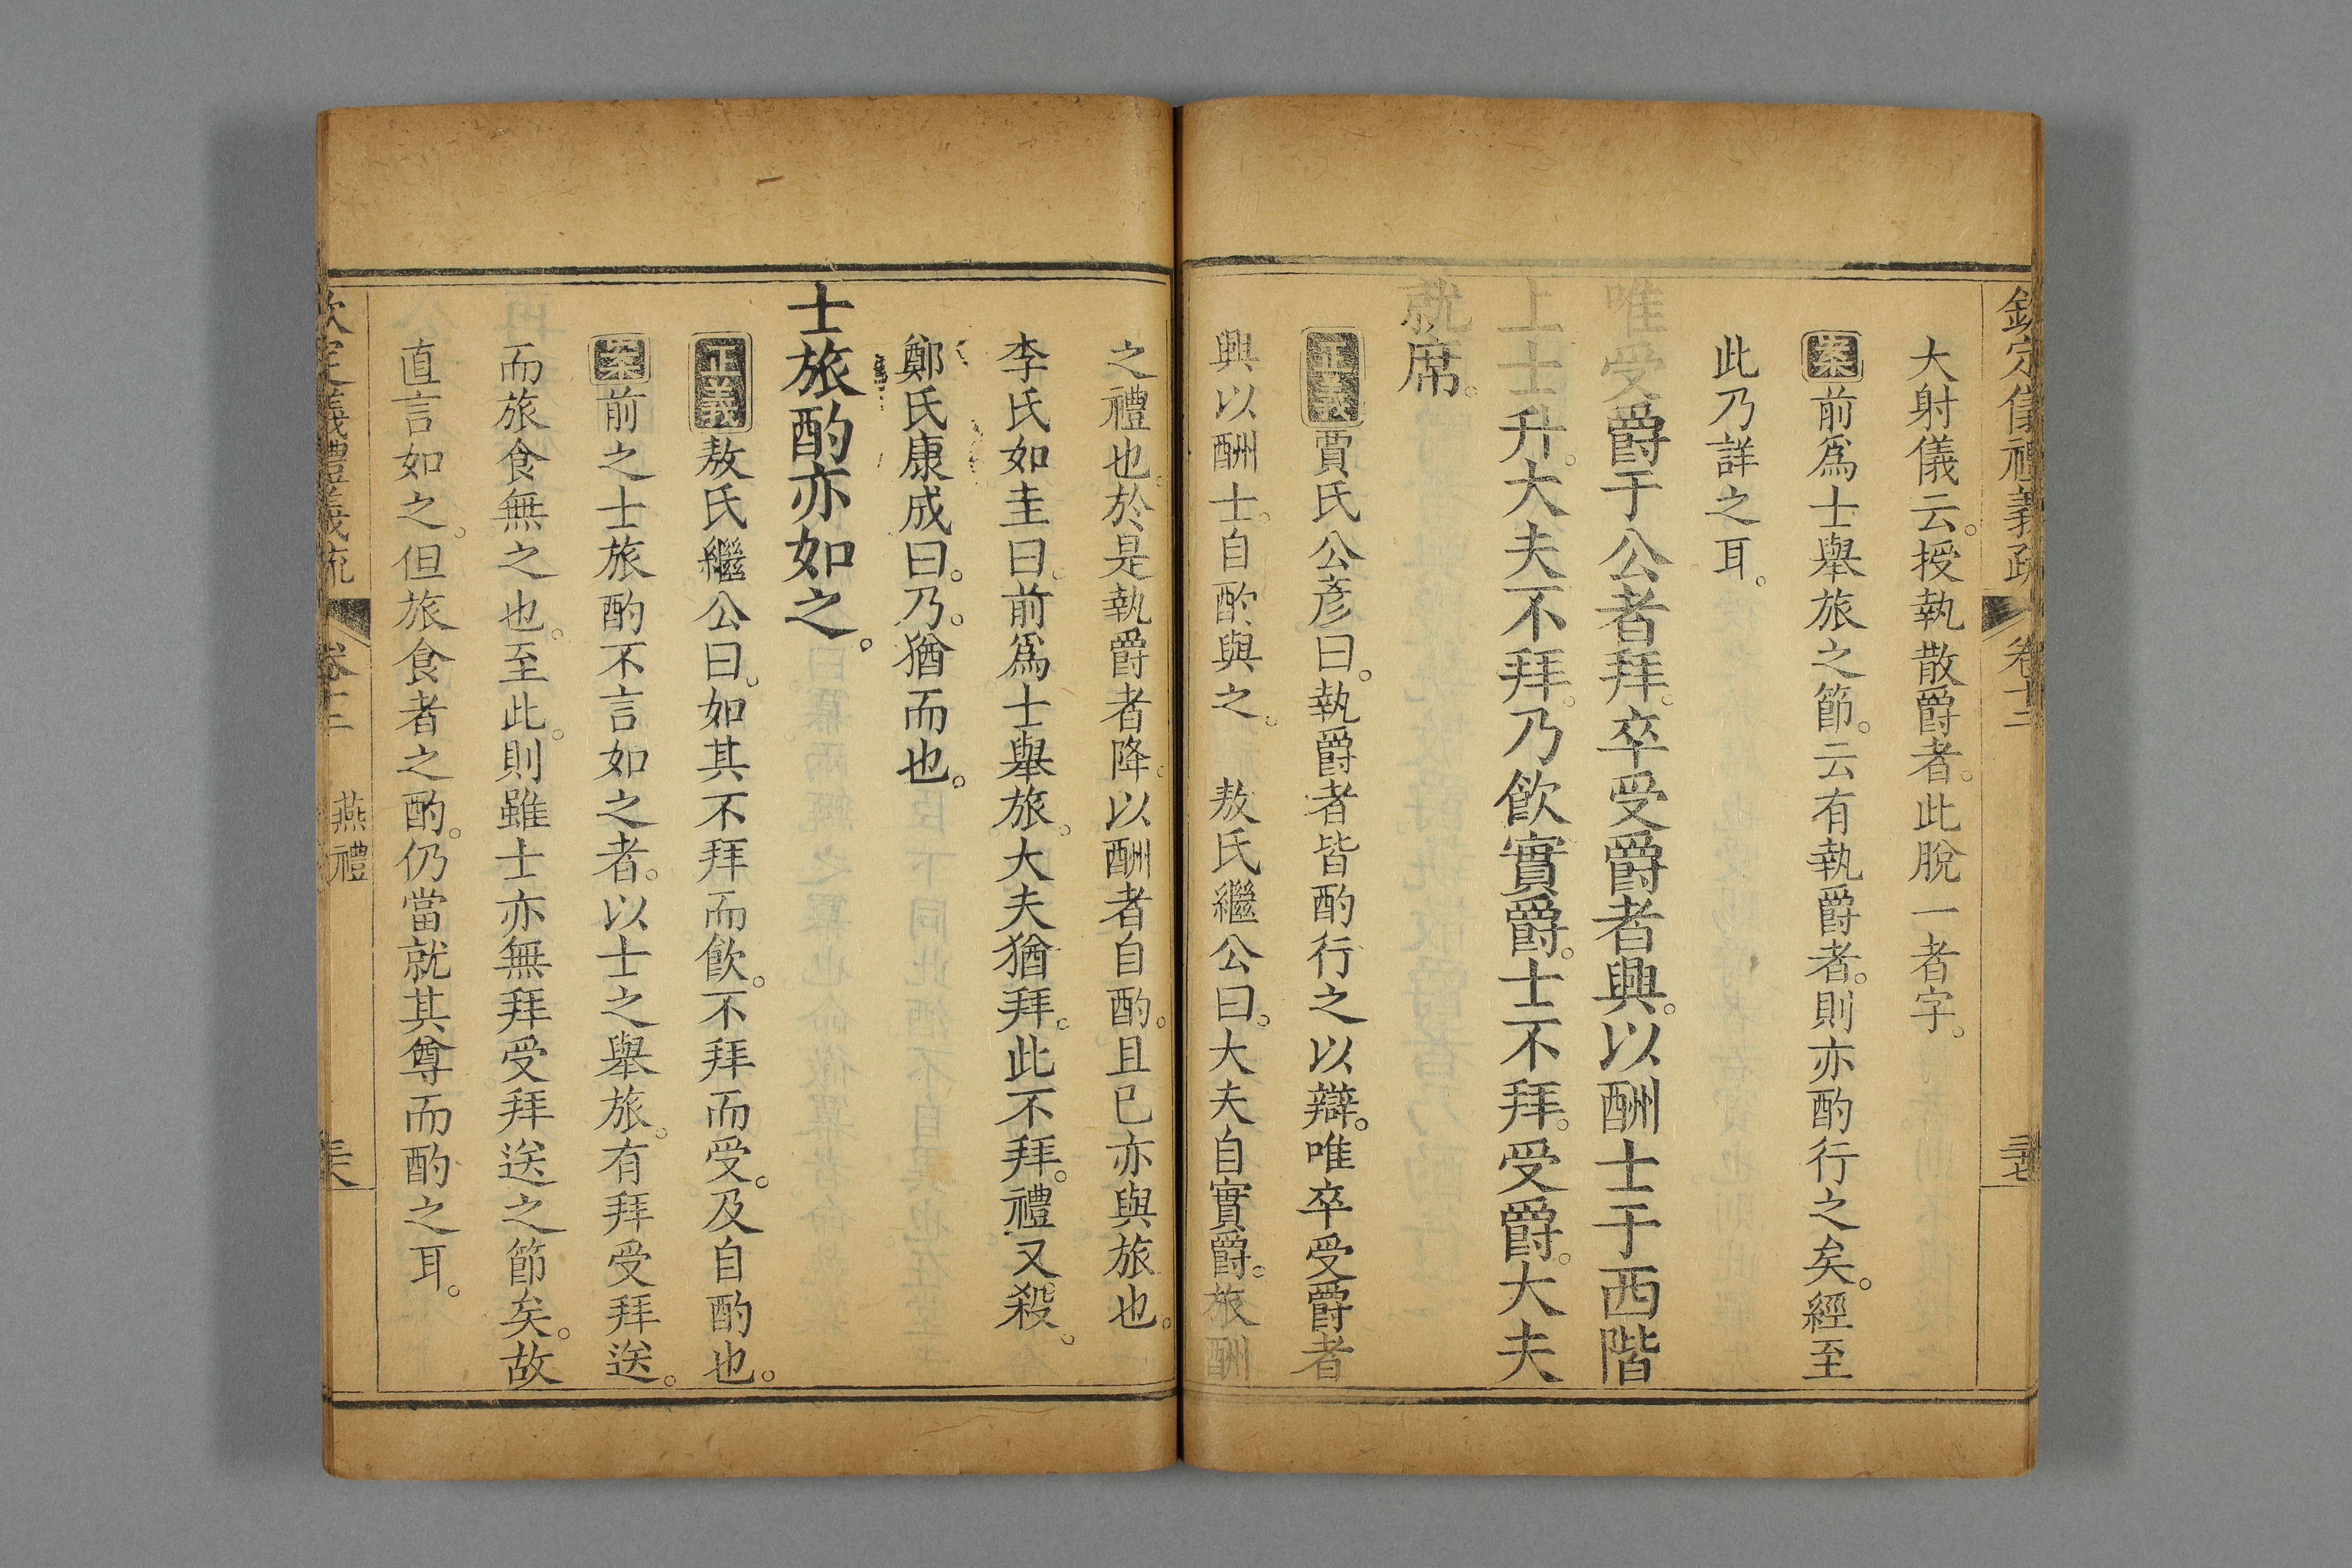 欽定儀禮義疏 卷十二 三十七
大射儀云。授執散爵者。此脫一者字。
案前爲士舉旅之節。云有執爵者。則亦酌行之矣。經至
此乃詳之耳。
唯受爵于公者拜。卒受爵者興。以酬士于西階
上士升。大夫不拜。乃飮實爵。士不拜。受爵。大夫
就席。
正義賈氏公彥曰。執爵者皆酌行之以辯。唯卒受爵者
興以酬士。自酌與之。 敖氏繼公曰。大夫自實爵。旅酬
之禮也。於是執爵者降。以酬者自酌。且已亦與旅也。
李氏如圭曰。前爲士舉旅。大夫猶拜。此不拜。禮又殺。
鄭氏康成曰。乃。猶而也。
士旅酌亦如之。
正義敖氏繼公曰。如其不拜而飮。不拜而受。及自酌也。
案前之士旅酌不言如之者。以士之舉旅。有拜受拜送。
而旅食無之也。至此。則雖士亦無拜受拜送之節矣。故
直言如之。但旅食者之酌。仍當就其尊而酌之耳。
欽定儀禮義疏 卷十二 燕禮